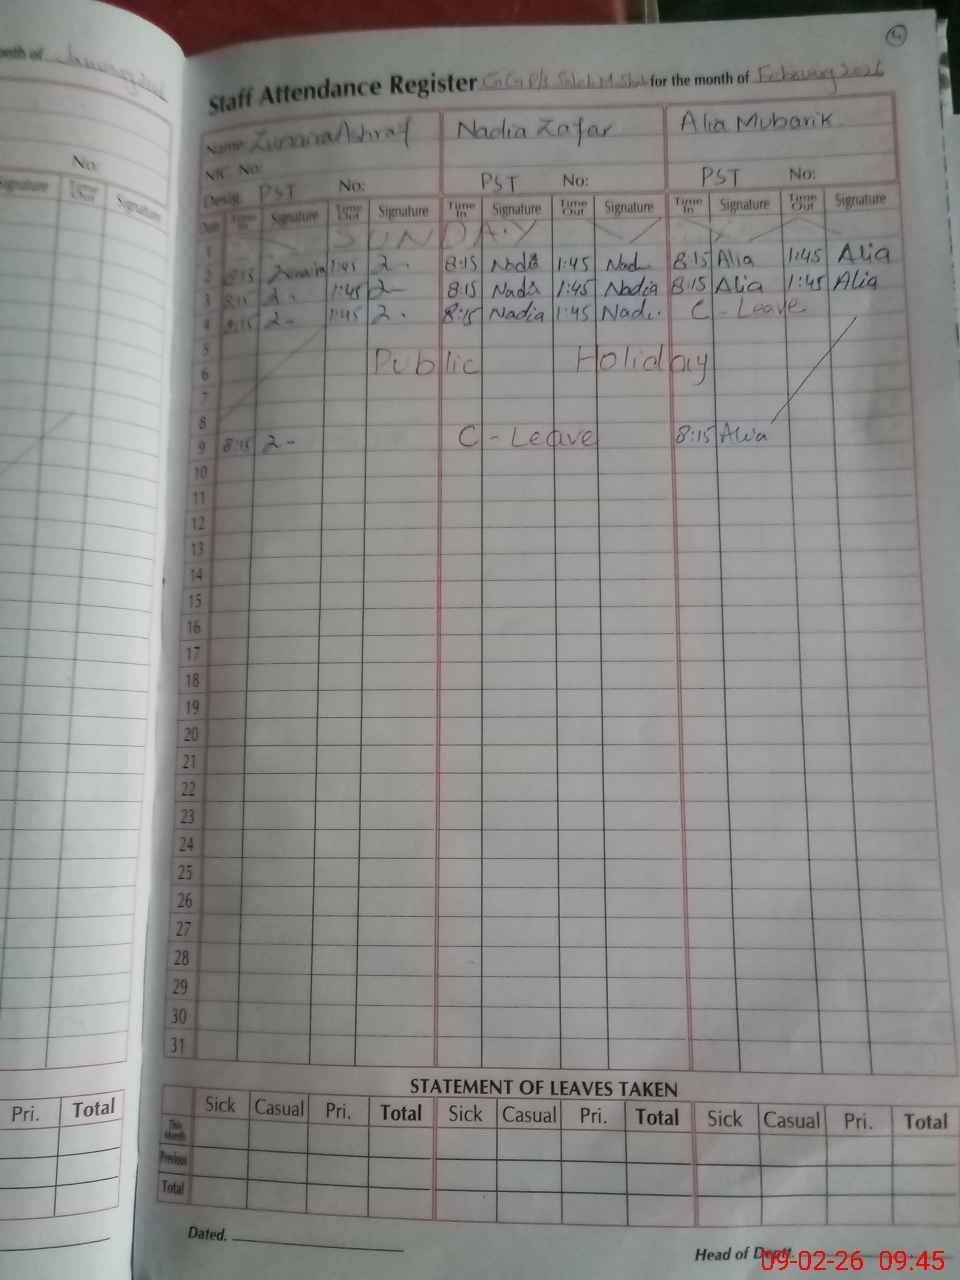 onth of January 2026
No:
Signature Time Out Signature
Pri. Total
4
Staff Attendance Register GGP/S for the month of February 2026
Name Zunaira Ashraf Nadia Zafar Alia Mubarik
N/C No:
Desig. PST No: PST No: PST No:
Date Time In Signature Time Out Signature Time In Signature Time Out Signature Time In Signature Time Out Signature
1 SUNDAY
2 8:15 Zunaira 1:45 2- 8:15 Nadia 1:45 Nad 8:15 Alia 1:45 Alia
3 8:15 2- 1:45 2- 8:15 Nadi 1:45 Nadia 8:15 Alia 1:45 Alia
4 8:15 2- 1:45 2- 8:15 Nadia 1:45 Nadi C - Leave
5
6 Public Holiday
7
8
9 8:15 2- C - Leave 8:15 Alia
10
11
12
13
14
15
16
17
18
19
20
21
22
23
24
25
26
27
28
29
30
31
STATEMENT OF LEAVES TAKEN
Sick Casual Pri. Total Sick Casual Pri. Total Sick Casual Pri. Total
This Month
Previous
Total
Dated.
Head of Deptt.
09-02-26 09:45